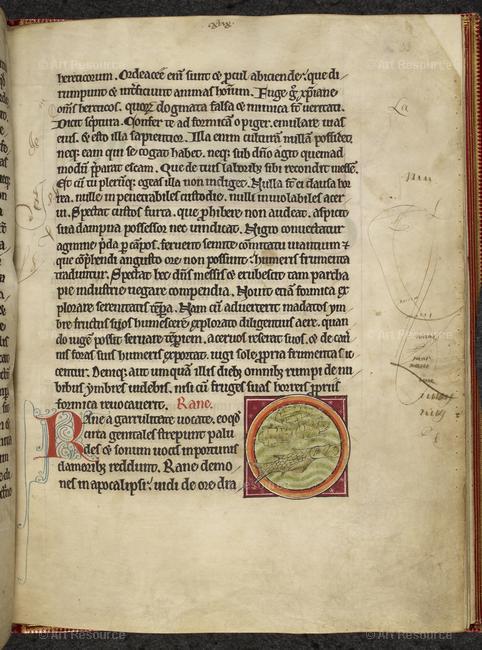 xlix.
hereticorum. Ordeacee eni sunt & pcul abiciende: que di
rumpunt & interficiunt animas hominum. Fuge g xpiane
omnes hereticos. quorum dogmata falsa & inimica sunt ueritati.
Dicit scriptura. Confer te ad formicam o piger. emulare uias
eius. & esto illa sapientior. Illa enim culturam nullam possidet.
neque eam qui se cogat habet. neque sub domino agit quemad
modum parat escam. Que de tuis laboribus sibi recondit messem.
Et cum tu plerumque egeas illa non indiget. Nulla sunt ei clausa hor
rea. nulle inpenetrabiles custodie. nulli inuiolabiles acer
ui. Spectat custos furta. que phibere non audeat. aspicit
sua dampna possessor nec uindicat. Nigro conuectatur
agmine pda p campos. feruent semite comitatu uiantium &
que comphendi angusto ore non possunt: humeris frumenta
traduntur. Spectat hec dominus messis & erubescit tam parcha
pie industrie negare compendia. Nouit etiam formica ex
plorare serenitatis tempora. Nam cum aduerterit madidatos ym
bre fructus suos humescere explorato diligentius aere. quan
do iugem possit seruare temperiem. aceruos reserat suos. & de caui
nis foras suis humeris exportat. ut iugi sole propria frumenta sic
centur. Denique haut unquam illis diebus omnibus rumpi de nu
bibus ymbres uidebis. nisi cum fruges suas horreis propriis
formica reuocauerit. Rane.
Rane a garrulitate uocate. eo quod
circa genitales strepunt palu
des & sonum uocis inportunis
clamoribus reddunt. Rane demo
nes in apocalipsi: uidi de ore dra
La
© Art Resource
© Art Resource
© Art Resource
© Art Resource